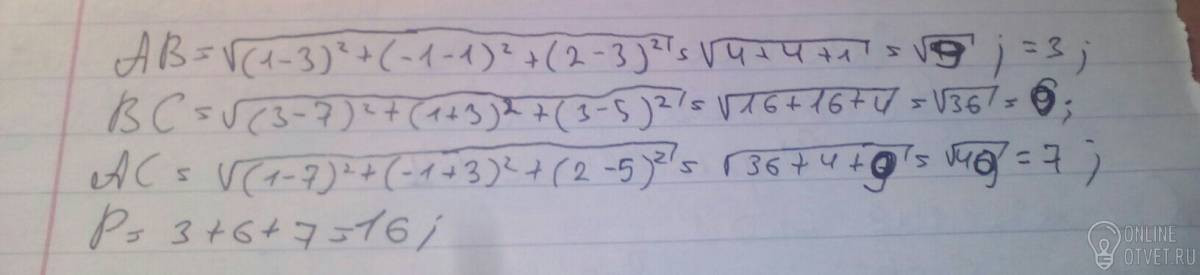 AB = √(1-3)² + (-1-1)² + (2-3)² = √4+4+1 = √9 ; = 3 ;
BC = √(3-7)² + (1+3)² + (3-5)² = √16+16+4 = √36 = 6;
AC = √(1-7)² + (-1+3)² + (2-5)² = √36+4+9 = √49 = 7 ;
P = 3+6+7=16 ;
ONLINE
OTVET.RU